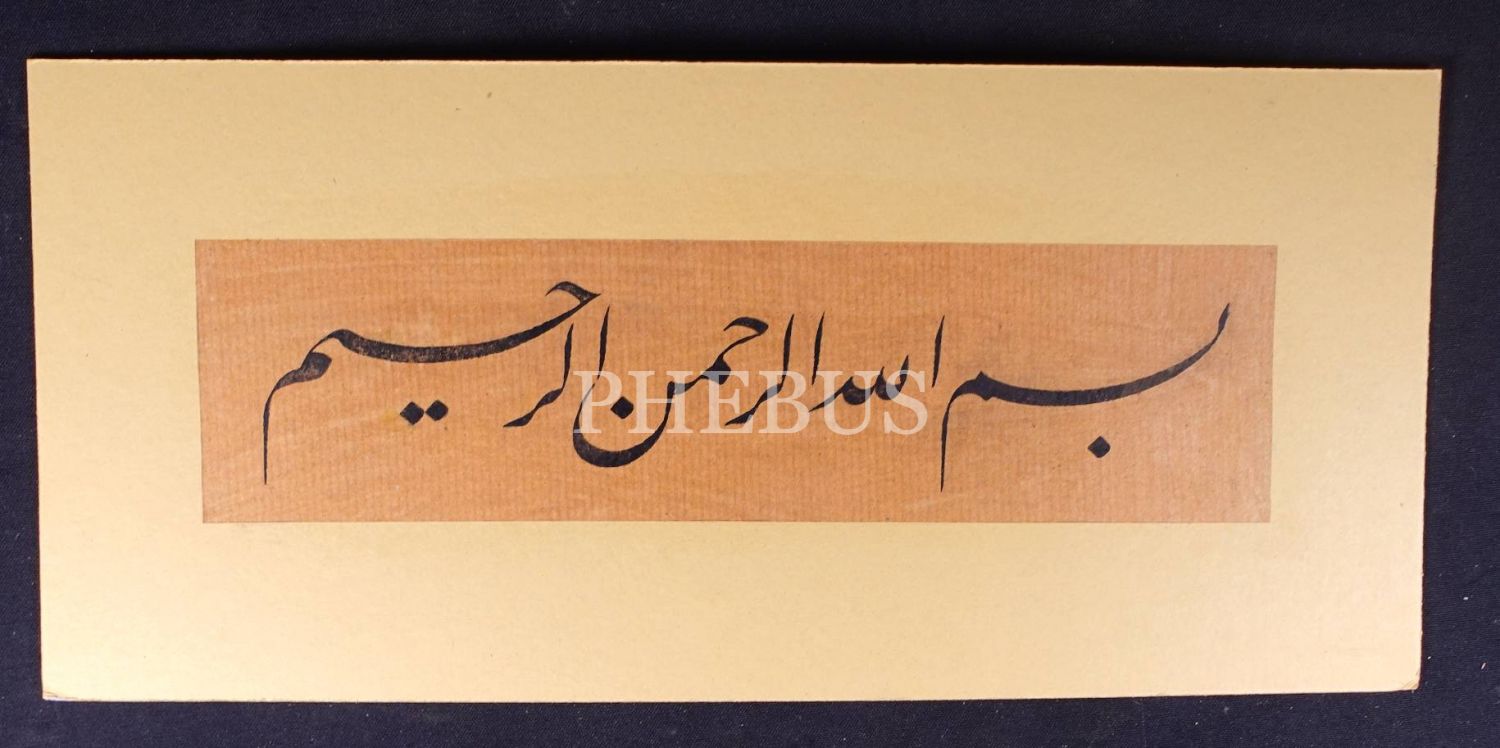 بسم الله الرحمن الرحیم
PHEBUS